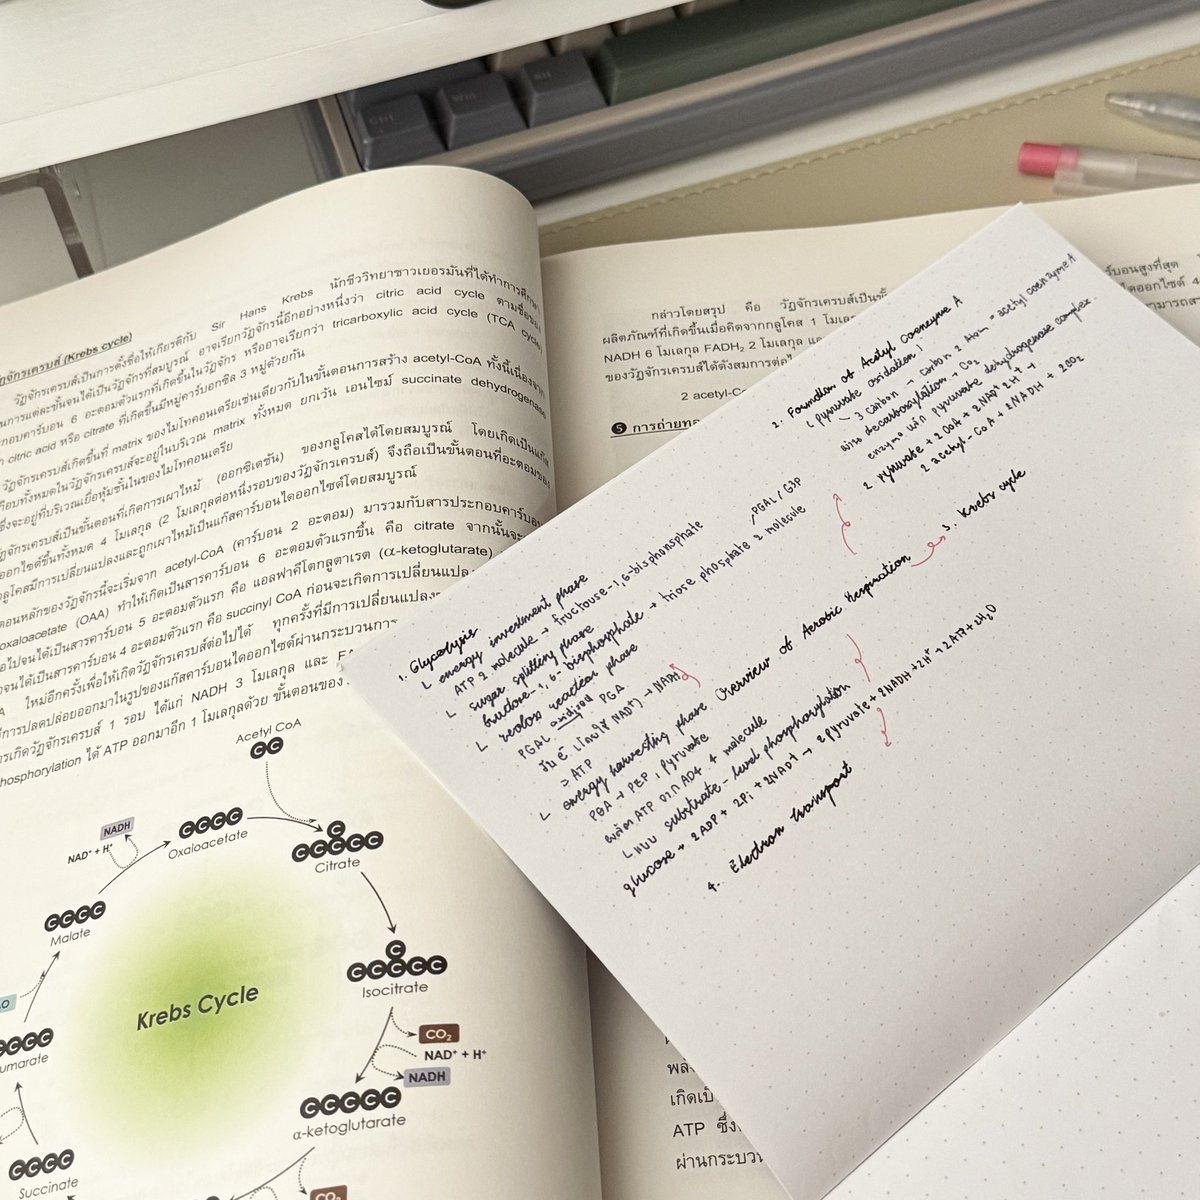 Ctrl
Win
Alt
วัฏจักรเครบส์ (Krebs cycle)
วัฏจักรเครบส์เป็นการตั้งชื่อให้เกียรติกับ Sir Hans Krebs นักชีววิทยาชาวเยอรมันที่ได้ทำการศึกษา
ในการแต่ละขั้นจนได้เป็นวัฏจักรที่สมบูรณ์ อาจเรียกวัฏจักรนี้อีกอย่างหนึ่งว่า citric acid cycle ตามชื่อของ
กอบคาร์บอน 6 อะตอมตัวแรกที่เกิดขึ้นในวัฏจักร หรืออาจเรียกว่า tricarboxylic acid cycle (TCA cycle)
citric acid หรือ citrate ที่เกิดขึ้นมีหมู่คาร์บอกซิล 3 หมู่ด้วยกัน
วัฏจักรเครบส์เกิดขึ้นที่ matrix ของไมโทคอนเดรียเช่นเดียวกับในขั้นตอนการสร้าง acetyl-CoA ทั้งนี้เนื่องจาก
ทั้งหมดในวัฏจักรเครบส์จะอยู่ในบริเวณ matrix ทั้งหมด ยกเว้น เอนไซม์ succinate dehydrogenase
ซึ่งจะอยู่ที่บริเวณเยื่อหุ้มชั้นในของไมโทคอนเดรีย
วัฏจักรเครบส์เป็นขั้นตอนที่เกิดการเผาไหม้ (ออกซิเดชัน) ของกลูโคสได้โดยสมบูรณ์ โดยเกิดเป็นแก๊ส
ออกไซด์ขึ้นทั้งหมด 4 โมเลกุล (2 โมเลกุลต่อหนึ่งรอบของวัฏจักรเครบส์) จึงถือเป็นขั้นตอนที่อะตอมของ
กลูโคสมีการเปลี่ยนแปลงและถูกเผาไหม้เป็นแก๊สคาร์บอนไดออกไซด์โดยสมบูรณ์
ตอนหลักของวัฏจักรนี้จะเริ่มจาก acetyl-CoA (คาร์บอน 2 อะตอม) มารวมกับสารประกอบคาร์บอน
oxaloacetate (OAA) ทำให้เกิดเป็นสารคาร์บอน 6 อะตอมตัวแรกขึ้น คือ citrate จากนั้นจะ
ไปจนได้เป็นสารคาร์บอน 5 อะตอมตัวแรก คือ แอลฟาคีโตกลูตาเรต (α-ketoglutarate)
จนได้เป็นสารคาร์บอน 4 อะตอมตัวแรกคือ succinyl CoA ก่อนจะเกิดการเปลี่ยนแปลง
ใหม่อีกครั้งเพื่อให้เกิดวัฏจักรเครบส์ต่อไปได้ ทุกครั้งที่มีการเปลี่ยนแปลง
มีการปลดปล่อยออกมาในรูปของแก๊สคาร์บอนไดออกไซด์ผ่านกระบวนการ
การเกิดวัฏจักรเครบส์ 1 รอบ ได้แก่ NADH 3 โมเลกุล และ
phosphorylation ได้ ATP ออกมาอีก 1 โมเลกุลด้วย ขั้นตอนของ
Acetyl CoA
CC
NADH
NAD⁺ + H⁺
CCCC
Oxaloacetate
C
CCCCC
Citrate
CCCC
Malate
C
CCCCC
Isocitrate
Krebs Cycle
CO₂
NAD⁺ + H⁺
NADH
CCCCC
α-ketoglutarate
umarate
CCCC
Succinate
CO₂
กล่าวโดยสรุป คือ วัฏจักรเครบส์เป็นขั้น
ผลิตภัณฑ์ที่เกิดขึ้นเมื่อคิดจากกลูโคส 1 โมเล
NADH 6 โมเลกุล FADH₂ 2 โมเลกุล
ของวัฏจักรเครบส์ได้ดังสมการต่อไ
2 acetyl-C
5 การถ่ายทอ
ร์บอนสูงที่สุด
ไดออกไซด์ 4
พลัง
เกิดเป็
ATP ซึ่ง
ผ่านกระบวน
2. Formation of Acetyl Coenzyme A
( pyruvate oxidation )
- 3 carbon → carbon 2 atom = acetyl coenzyme A
ผ่าน decarboxylation → CO₂
enzyme บริเวณ pyruvate dehydrogenase complex.
2 pyruvate + 2CoA + 2NAD⁺2H⁺ →
2 acetyl-CoA + 2NADH + 2CO₂
1. Glycolysis
energy investment phase
ATP 2 molecule → fructose-1,6-bisphosphate
sugar splitting phase
fructose-1,6-bisphosphate → triose phosphate 2 molecule
PGAL / G3P
redox reaction phase
PGAL oxidized PGA
รับ e⁻ (โดยใช้ NAD⁺) → NADH
= ATP
energy harvesting phase
PGA → PEP, Pyruvate
ผลิต ATP จาก ADP 4 molecule
แบบ substrate-level phosphorylation
glucose + 2ADP + 2Pi + 2NAD⁺ → 2Pyruvate + 2NADH + 2H⁺ + 2ATP + 2H₂O
Overview of Aerobic Respiration
3. Krebs cycle
4. Electron transport